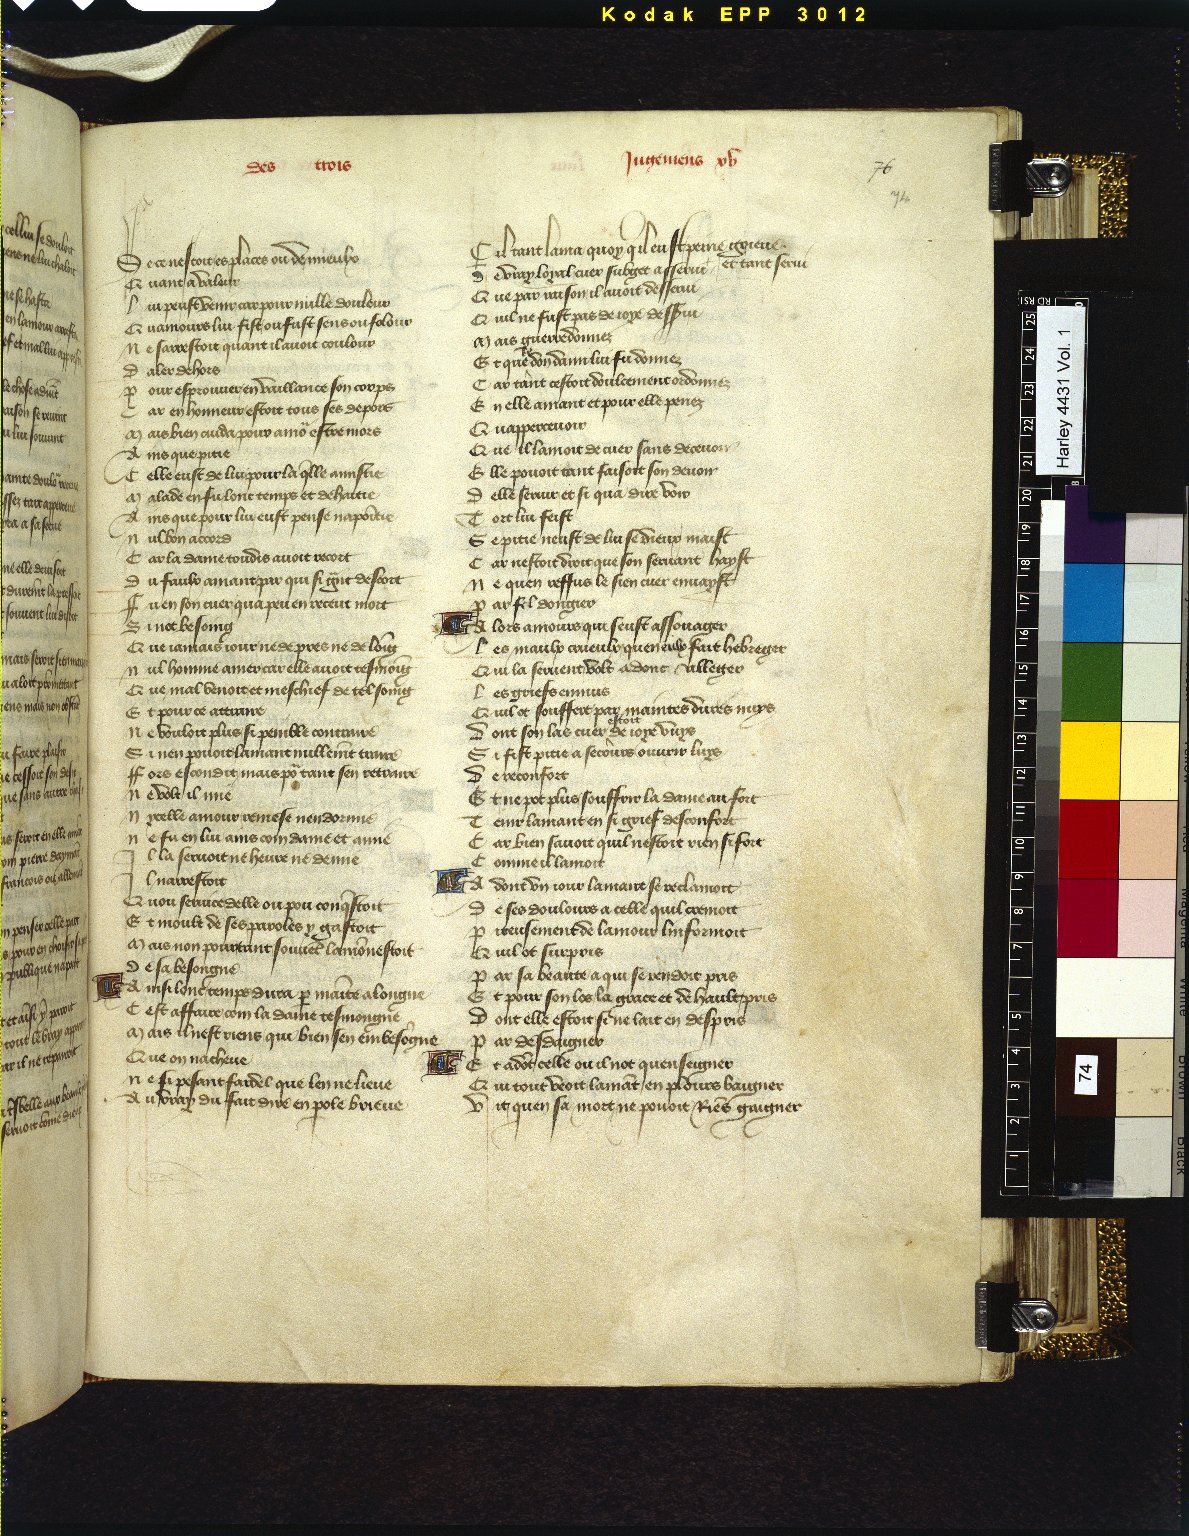 Kodak EPP 3012
des trois
Jugemens xv
76
74
Se ce nestoit es places ou de mieulx
Quant a valour
Lui peust venir car pour nulle doulour
Quamours lui fist ou fust sens ou folour
Ne sarrestoit quant il avoit coulour
Daler dehors
Pour esprouver en vaillance son corps
Car en honneur estoit tous ses depors
Mais bien cuida pour amo estre mors
Ains que pitie
Celle eust de lui pour la qlle amistie
Malade en fu lonc temps et dehaitie
Ains que pour lui eust pense napoitie
Nul bon accord
Car la dame toudis avoit recort
Du faulx amant par qui si grit descort
Fu en son cuer qua peu en receut mort
Si not besoing
Que iamais iour ne de pres ne de loing
Nul homme amer car elle avoit tesmoing
Que mal benoit et meschief de tel soing
Et pour ce attraire
Ne vouloit plus si penible contraire
Si nen pouoit lamant nullemt traire
Fors escondit mais po tant sen retraire
Ne volt il mie
Nycelle amour remese nendormie
Ne fu en lui ains com dame et amie
Il la servoit ne heure ne demie
Il narrestoit
Quou service delle ou pou conqstoit
Et moult de ses paroles y gastoit
Mais non pourtant souvet lamonestoit
De sa besongne
Ainsi lonc temps dura p mainte alongne
Cest affaire com la dame tesmongne
Mais il nest riens qui bien sen embesongne
Que on nacheve
Ne si pesant fardel que len ne lieve
Au vray du fait dire en pole brieve
Cil tant lama quoy qil eust peine grieve
De vray loyal cuer subget asservi et tant servi
Que par raison il avoit desservi
Quil ne fust pas de ioye desservi
Mais guerredonnez
Et que don dami lui fu donnez
Car tant cestoit doulcement ordonnez
En elle amant et pour elle penez
Quappercevoir
Que il lamoit de cuer sans decevoir
Elle pouoit tant faisoit son devoir
Delle servir et si qua dire voir
Tort lui feist
Se pitie neust de lui se dieux maist
Car nestoit droit que son servant hayst
Ne quen reffus le sien cuer envayst
Par fel dongier
Alors amours qui seust assouager
Les maulx crueulx quen eulx fait hebreger
Qui la servent volt adonc alleger
Les griefs ennuis
Quil ot souffert par maintes dures nuys
Dont son las cuer estoit de ioye vuys
Si fist pitie a secours ouvrir luys
De reconfort
Et ne pot plus souffrir la dame au fort
Tenir lamant en si grief desconfort
Car bien savoit quil nestoit rien si fort
Comme il lamoit
Adont un iour lamant se reclamoit
De ses doulours a celle quil cremoit
Piteusement de lamour linformoit
Quil ot surpris
Par sa beaute a qui se rendoit pris
Et pour son los la grace et de hault pris
Dont elle estoit si ne lait en despris
Par desdaigner
Et adoc celle ou il not quenseigner
Qui tout veoit lamat en plours baigner
Vit quen sa mort ne pouoit Riens gaigner
Harley 4431 Vol. 1
74